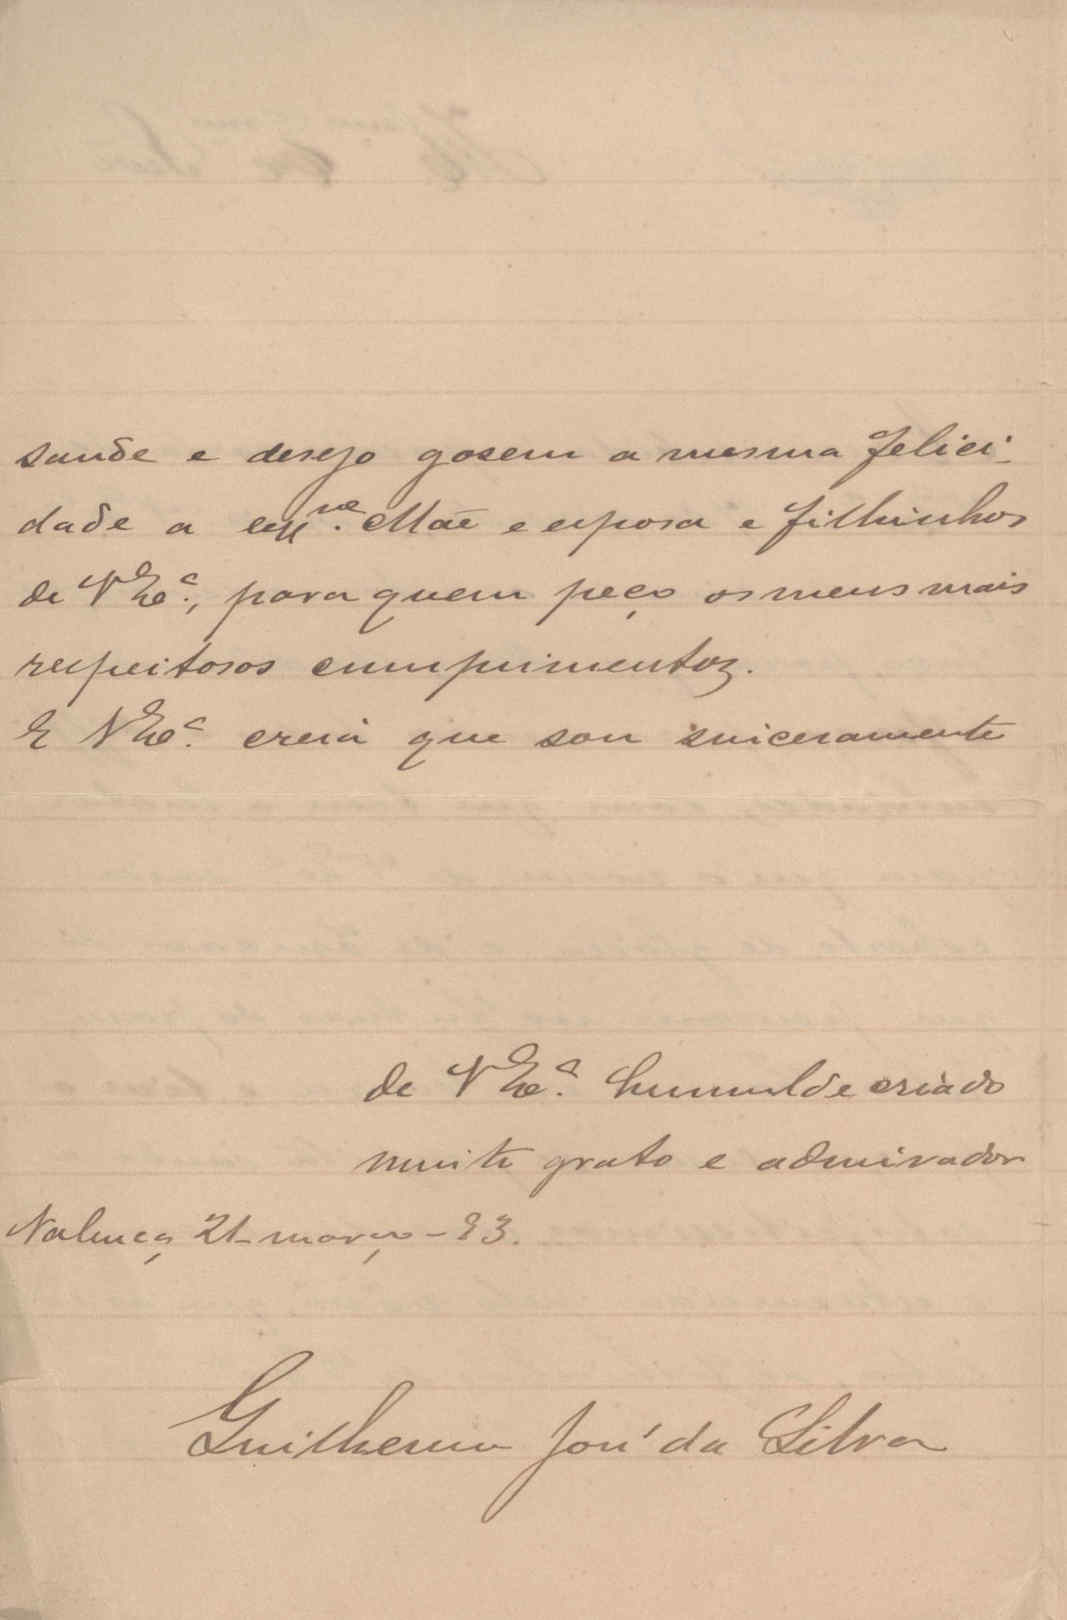 saude e desejo gosem a mesma felici-
dade a exm.ª Mãe e esposa e filhinhos
de V Ex.ª, para quem peço os meus mais
respeitosos cumprimentos.
E V Ex.ª creia que sou sinceramente
de V Ex.ª humulde criado
muito grato e admirador
Valença, 21 março - 93.
Guilherme José da Silva